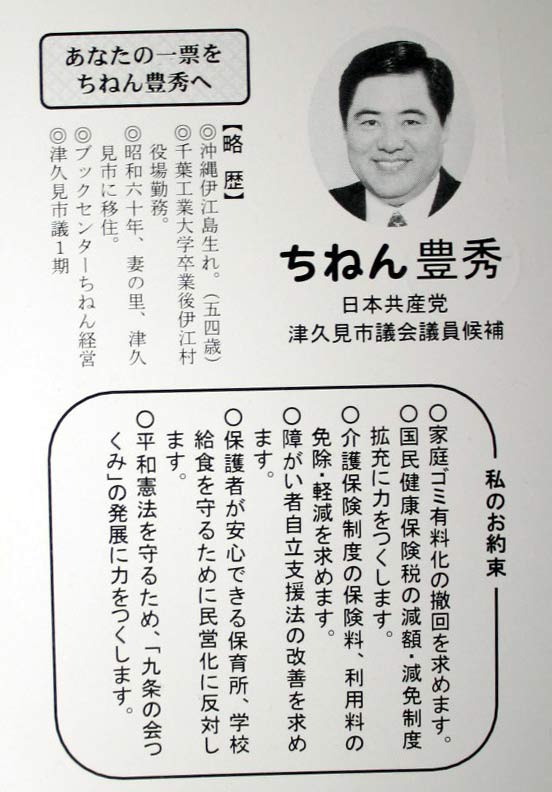 あなたの一票を
ちねん豊秀へ
ちねん豊秀
日本共産党
津久見市議会議員候補
【略歴】
◎沖縄伊江島生れ。(五四歳)
◎千葉工業大学卒業後伊江村
役場勤務。
◎昭和六十年、妻の里、津久
見市に移住。
◎ブックセンターちねん経営
◎津久見市議1期
私のお約束
○家庭ゴミ有料化の撤回を求めます。
○国民健康保険税の減額・減免制度
拡充に力をつくします。
○介護保険制度の保険料、利用料の
免除・軽減を求めます。
○障がい者自立支援法の改善を求め
ます。
○保護者が安心できる保育所、学校
給食を守るために民営化に反対し
ます。
○平和憲法を守るため、「九条の会つ
くみ」の発展に力をつくします。